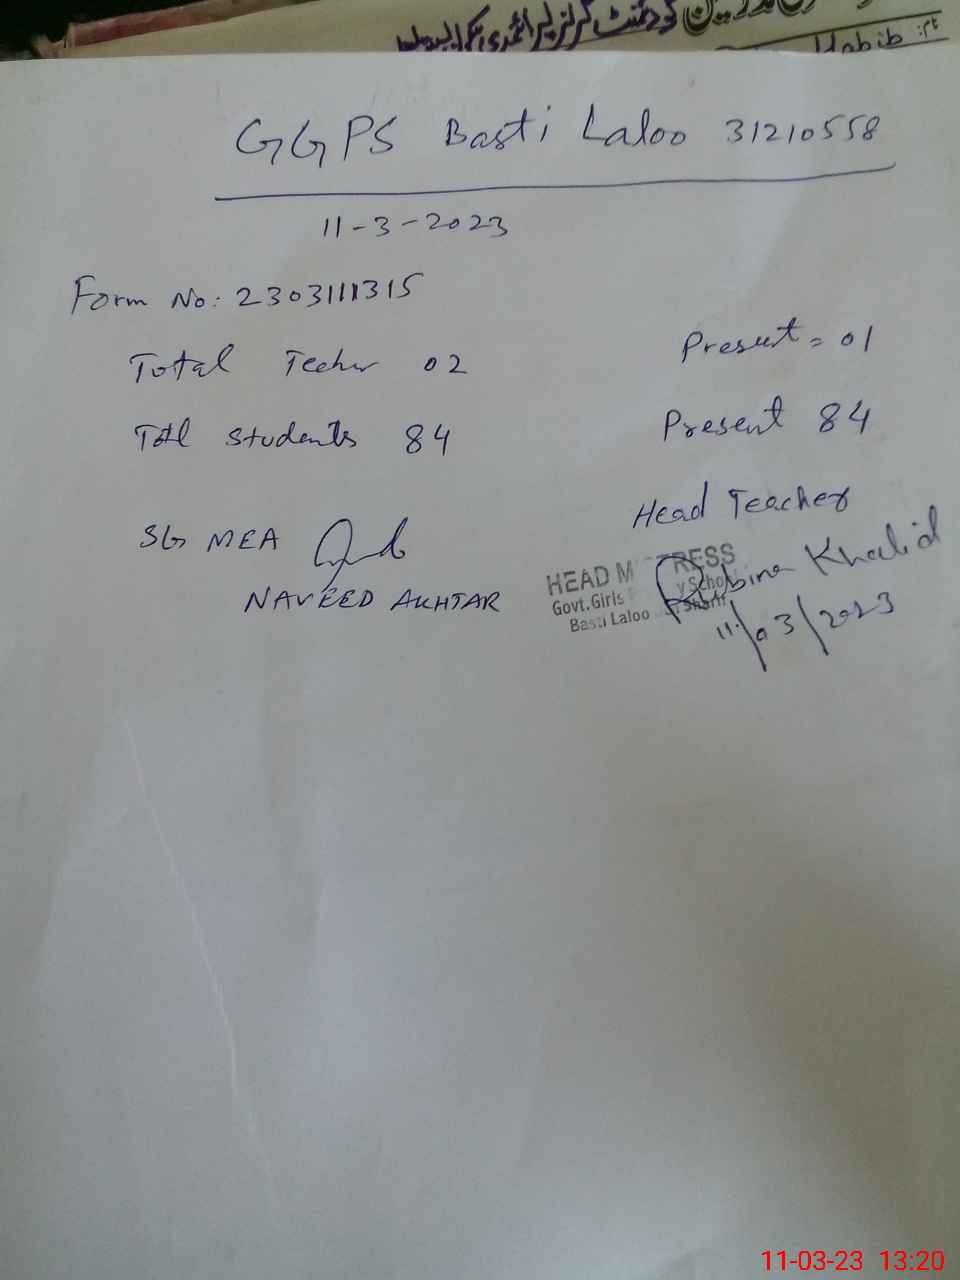 گورنمنٹ گرلز پرائمری
Habib
GGPS Basti Laloo 31210558
11-3-2023
Form No: 2303111315
Total Techr 02 Present = 01
Totl students 84 Present 84
Head Teacher
SG MEA
NAVEED AKHTAR
HEAD M TRESS
Govt. Girls y School
Basti Laloo Sharif
Rubina Khalid
11/03/2023
11-03-23 13:20